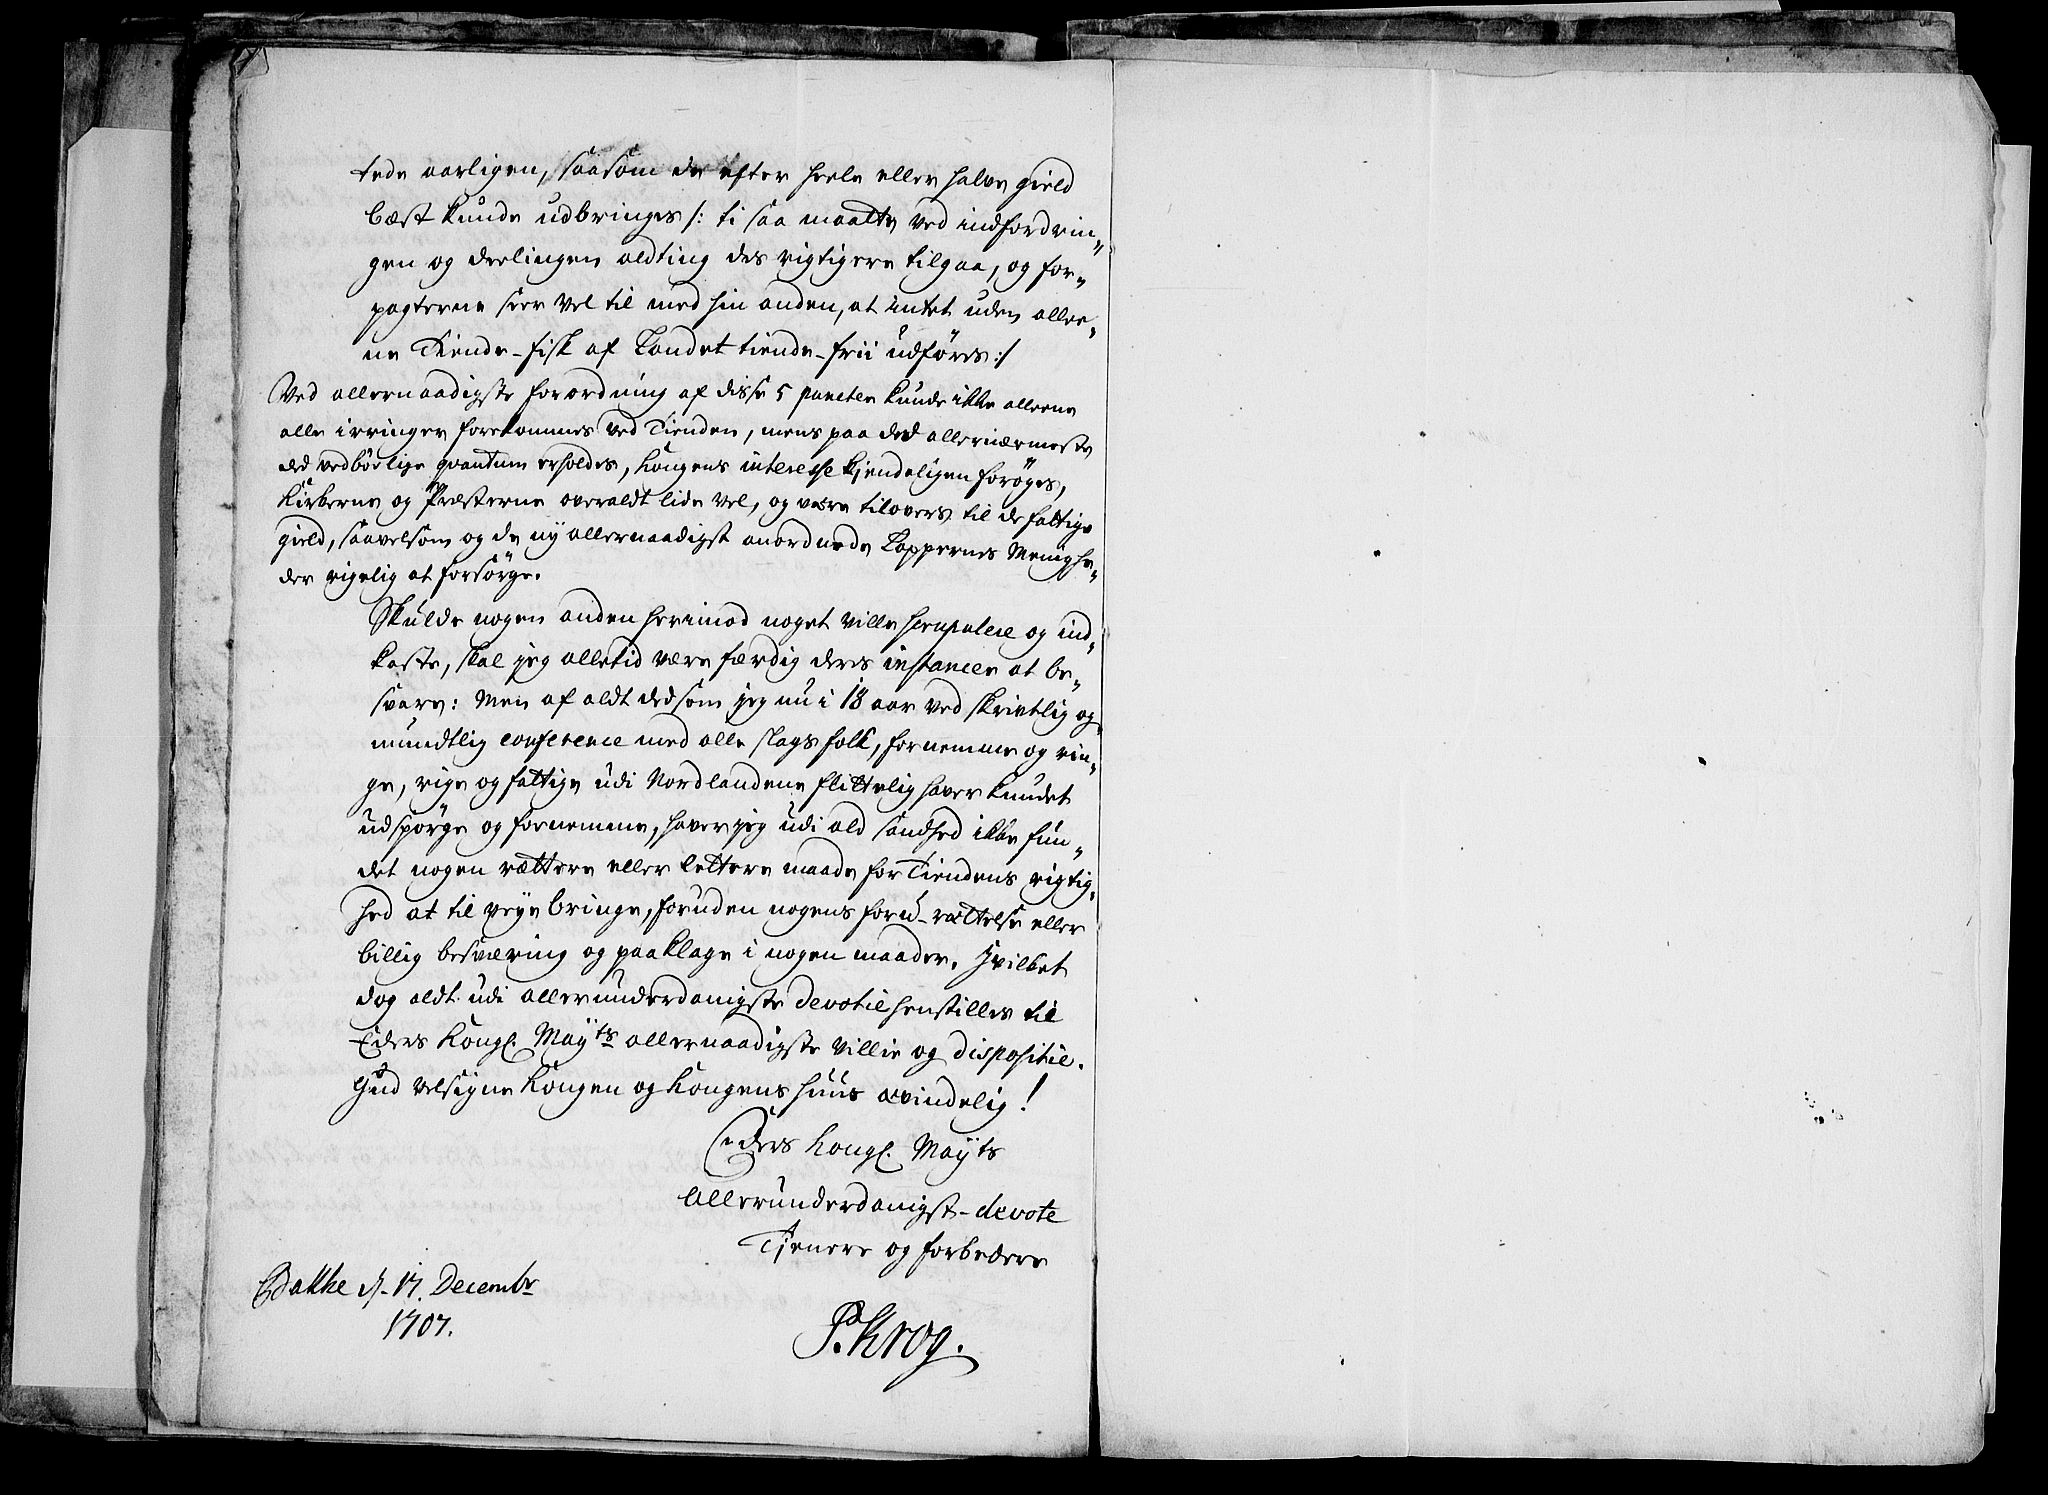 tede aarligen, saasom de efter heele eller halve gield
best kunde udbringes /: ti saa maatte ved indfordrin„
gen og deelingen alting des rigtigere tilgaa, og for„
pagterne seer vel til med hin anden, at intet uden allee„
ne Tiende-fisk af Landet tiende-frii udföres :/
Ved allernaadigste forordning af disse 5 puncter kunde ikke alleene
alle irringer forekommes ved Tienden, mens paa ded allernærmeste
ded vedbörlige qvantum erholdes, Kongens interesse kjendeligen foröges,
Kirkerne og Præsterne overaldt lide vel, og være tilovers til de fattige
gield, saavelsom og de ny allernaadigst anordnede Lappernes Menighe„
der rigelig at forsörge.
Skulde nogen anden herimod noget ville scrupulere og ind„
kaste, skal jeg alletid være færdig deres instancer at be„
svare: Men af aldt ded som jeg nu i 18 aar ved skriftlig og
mundtlig conference med alle slags folk, fornemme og rin„
ge, rige og fattige udi Nordlandene flittelig haver kundet
udspörge og fornemme, haver jeg udi ald sandhed ikke fun„
det nogen rættere eller lettere maade for Tiendens rigtig„
hed at til veye bringe, foruden nogens foru-rættelse eller
billig besværing og paaklage i nogen maader. Hvilket
dog aldt udi allerunderdanigste devotie henstilles til
Eders Kongl. Mayts allernaadigste villie og dispositie.
Gud velsigne Kongen og Kongens huus ævindelig!
Eders Kongl. Mayts
Allerunderdanigst-devote
Tjenere og forbedere
Bakke d. 17. Decembr
1707.
P. Krog.